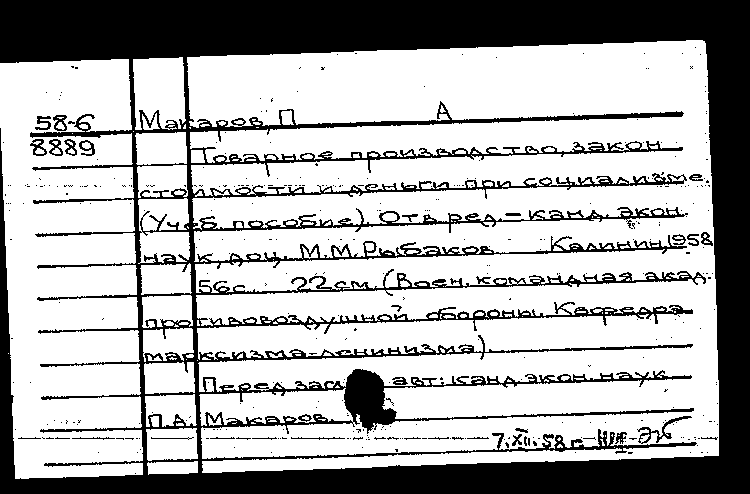 58-6 Макаров, П А
8889 Товарное производство, закон
стоимости и деньги при социализме.
(Учеб. пособие). Отв. ред. - канд. экон.
наук, доц. М.М. Рыбаков Калинин, 1958
56с. 22см. (Воен. командная акад.
противовоздушной обороны. Кафедра
марксизма-ленинизма).
Перед авт: канд. экон. наук
П.А. Макаров.
7.XII.58 г.